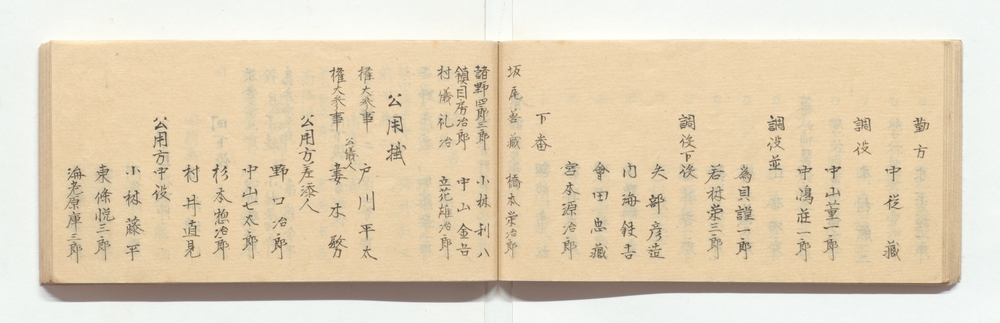 勤方 中 従 藏
調役 中山董一郎
中鴻荘一郎
調役並 為貝謹一郎
若林栄三郎
調役下役 矢部彦造
内海銕吉
會田忠藏
宮本源治郎
下番
坂尾善藏 橋本栄治郎
諸野四郎三郎 小林利八
領目房治郎 中山金吾
村儀礼治 立花雄治郎
公用掛
権大参事 戸川平太
権大参事 公儀人 妻木務
公用方差添人
野口冶郎
中山七太郎
杉本惣冶郎
村井直見
公用方中役
小林藤平
東條悦三郎
海老原庫三郎